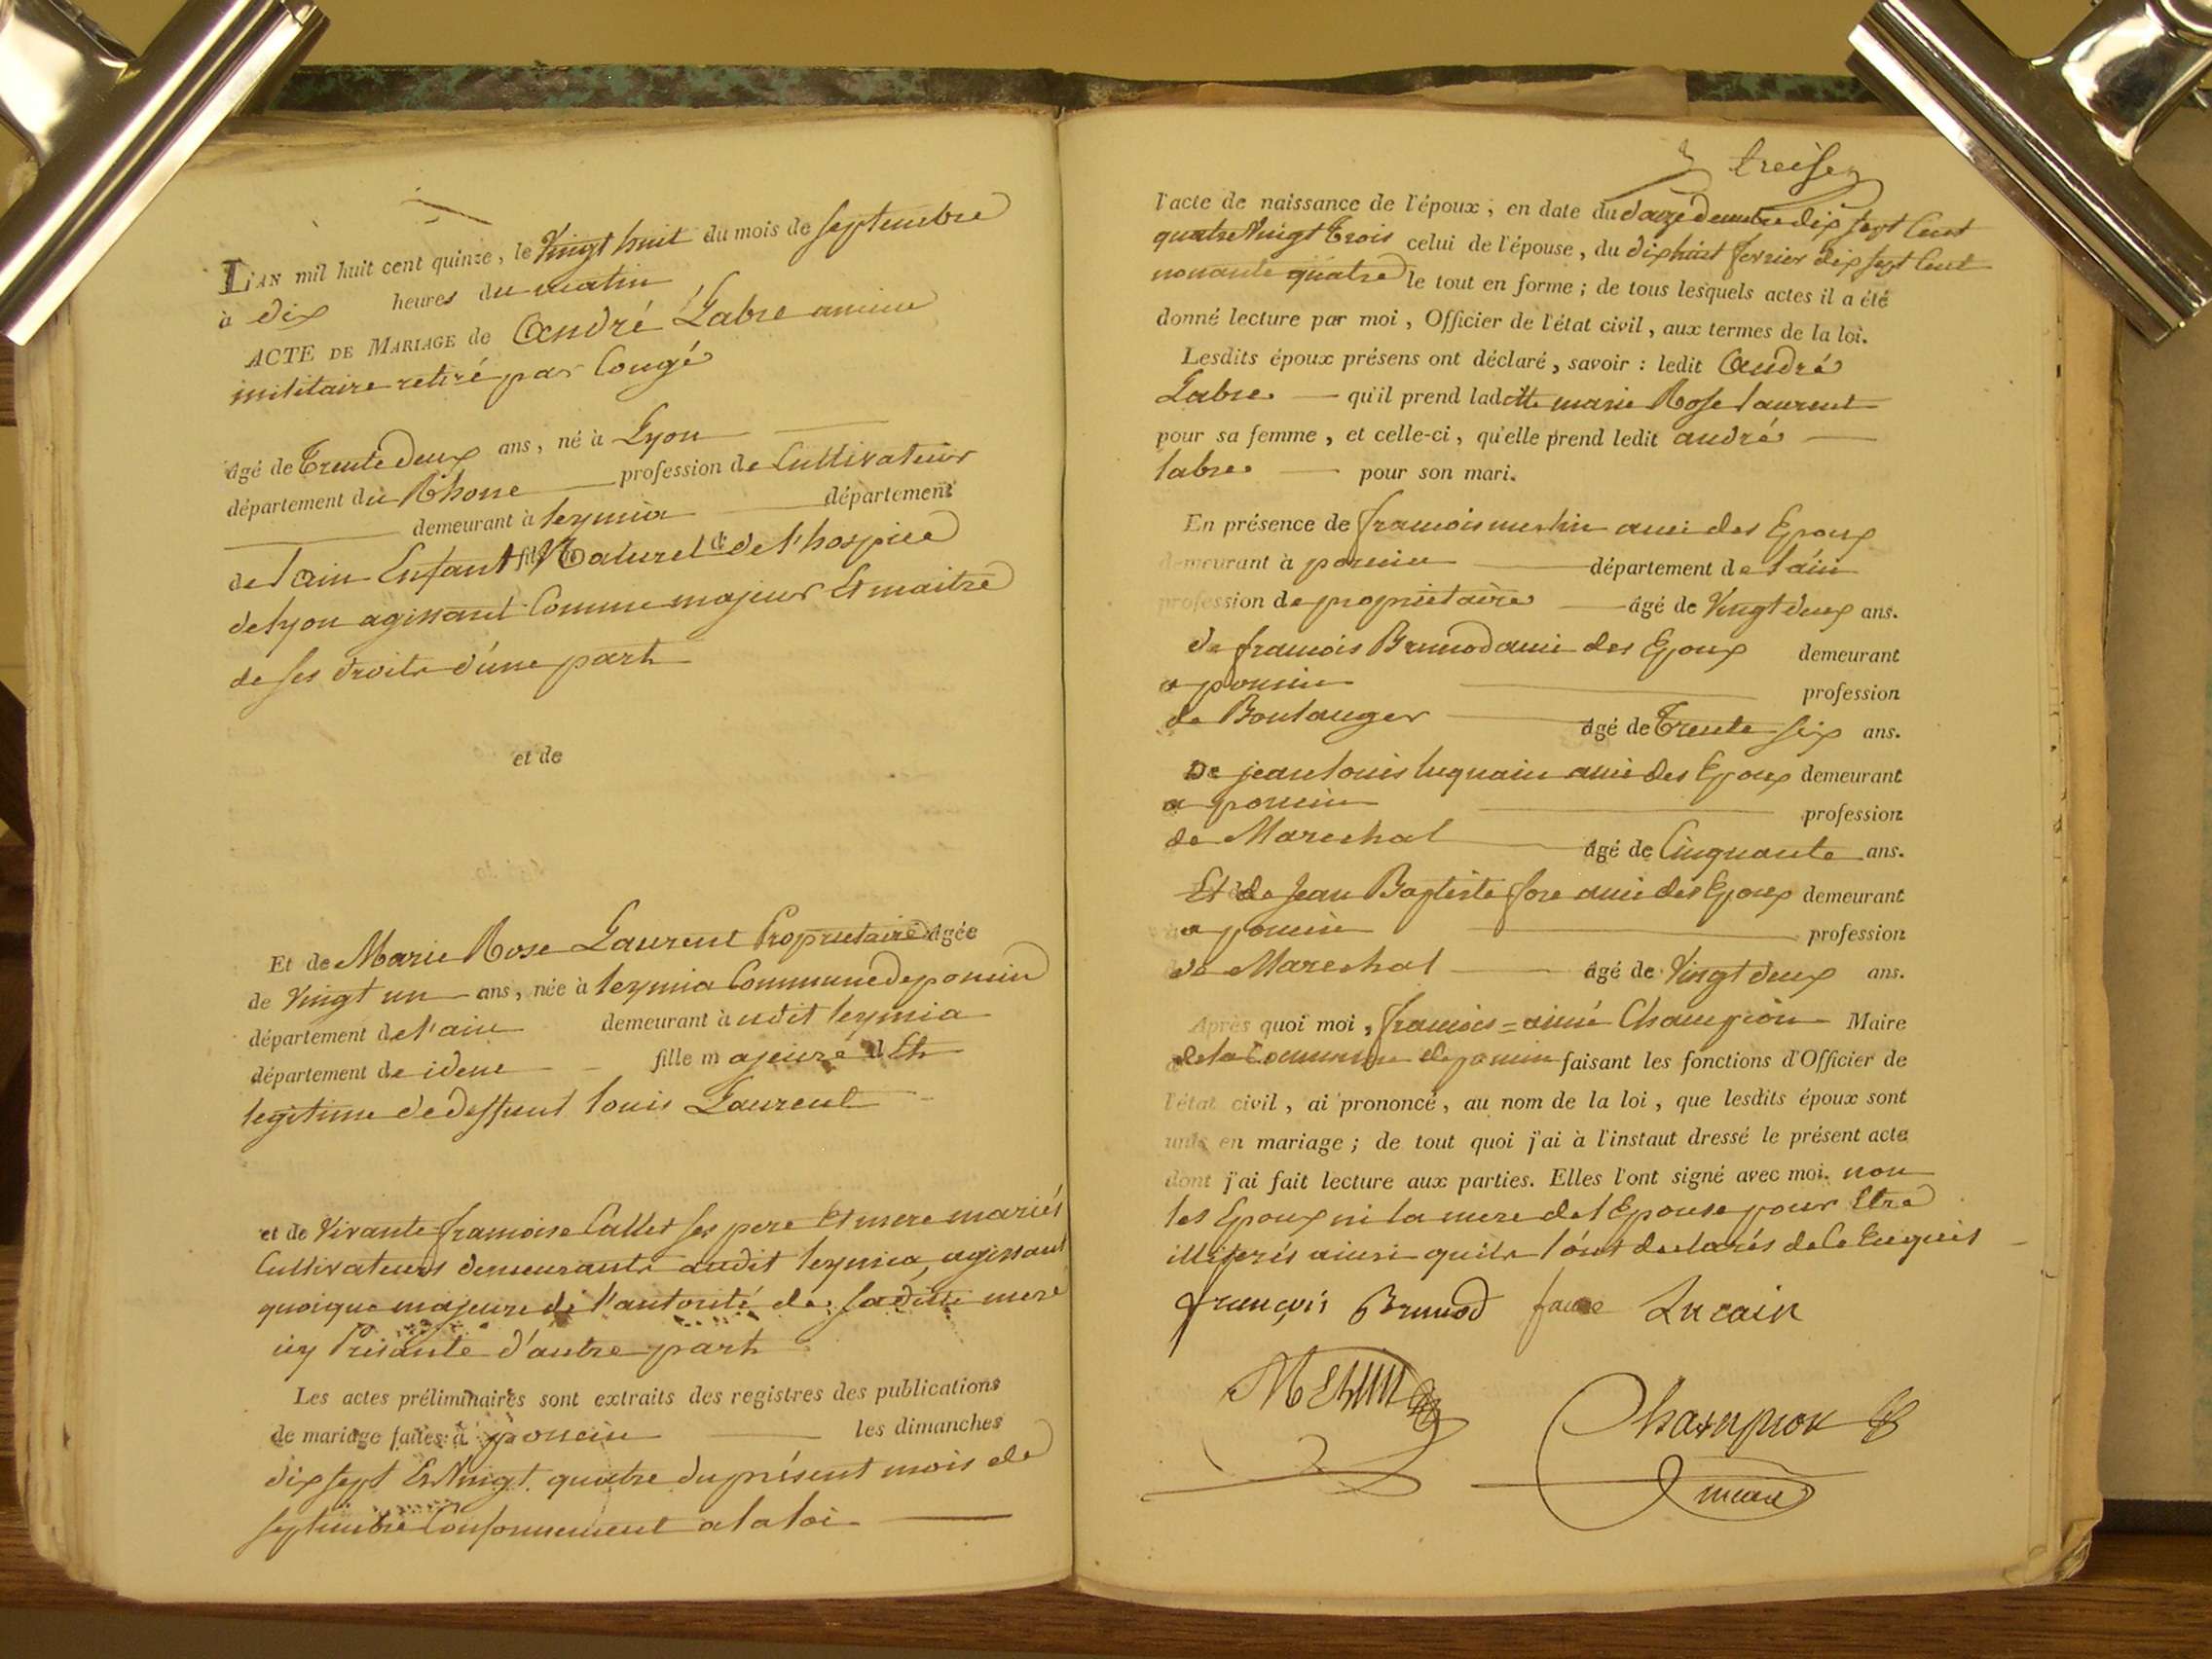 L'AN mil huit cent quinze, le Vingt huit du mois de Septembre
à dix heures du matin
ACTE DE MARIAGE de André Labre ancien
militaire retiré par Congé
âgé de Trente deux ans, né à Lyon
département du Rhone profession de Cultivateur
demeurant à leymia département
de l'ain Enfant fils Naturel de de l'hospice
de lyon agissant Comme majeur Et maitre
de ses droits d'une part
et de
Et de Marie Rose Laurent Proprietaire âgée
de Vingt un ans, née à leymia Commune de poncin
département de l'ain demeurant à udit leymia
département de idem fille majeure d Et
legitime de deffunt louis Laurent
et de Vivante françoise Callet ses pere Et mere mariés
Cultivateurs demeurants audit leymia, agissant
quoique majeure de l'autorité de sa ditte mere
icy Présente d'autre part
Les actes préliminaires sont extraits des registres des publications
de mariage faites à poncin les dimanches
dix sept Et Vingt quatre du présent mois de
septembre Conformement a la loi
treise
l'acte de naissance de l'époux, en date du dix sept Cent
quatre Vingt Trois celui de l'épouse, du dix huit fevrier dix sept Cent
nonante quatre le tout en forme; de tous lesquels actes il a été
donné lecture par moi, Officier de l'état civil, aux termes de la loi.
Lesdits époux présens ont déclaré, savoir : ledit André
Labre qu'il prend ladcitte marie Rose laurent
pour sa femme, et celle-ci, qu'elle prend ledit andré
labre pour son mari.
En présence de francois merlin ami des Epoux
demeurant à poncin département de l'ain
profession de proprietaire âgé de Vingt deux ans.
de francois Brunod ami des Epoux demeurant
a poncin profession
de Boulanger âgé de Trente six ans.
De jean louis luquain ami des Epoux demeurant
a poncin profession
de Marechal âgé de Cinquante ans.
Et de Jean Baptiste fore ami des Epoux demeurant
a poncin profession
de Marechal âgé de Vingt deux ans.
Après quoi moi, francois = aimé Champion Maire
de la Commune de poncin faisant les fonctions d'Officier de
l'état civil, ai prononcé, au nom de la loi, que lesdits époux sont
unis en mariage; de tout quoi j'ai à l'instaut dressé le présent acte
dont j'ai fait lecture aux parties. Elles l'ont signé avec moi. non
les Epoux ni la mere de l'Epouse pour Etre
illiterés ainsi quils l'ont declarés de Ce Enquis
françois Brunod faure Lucain
Merlin
Champion
maire